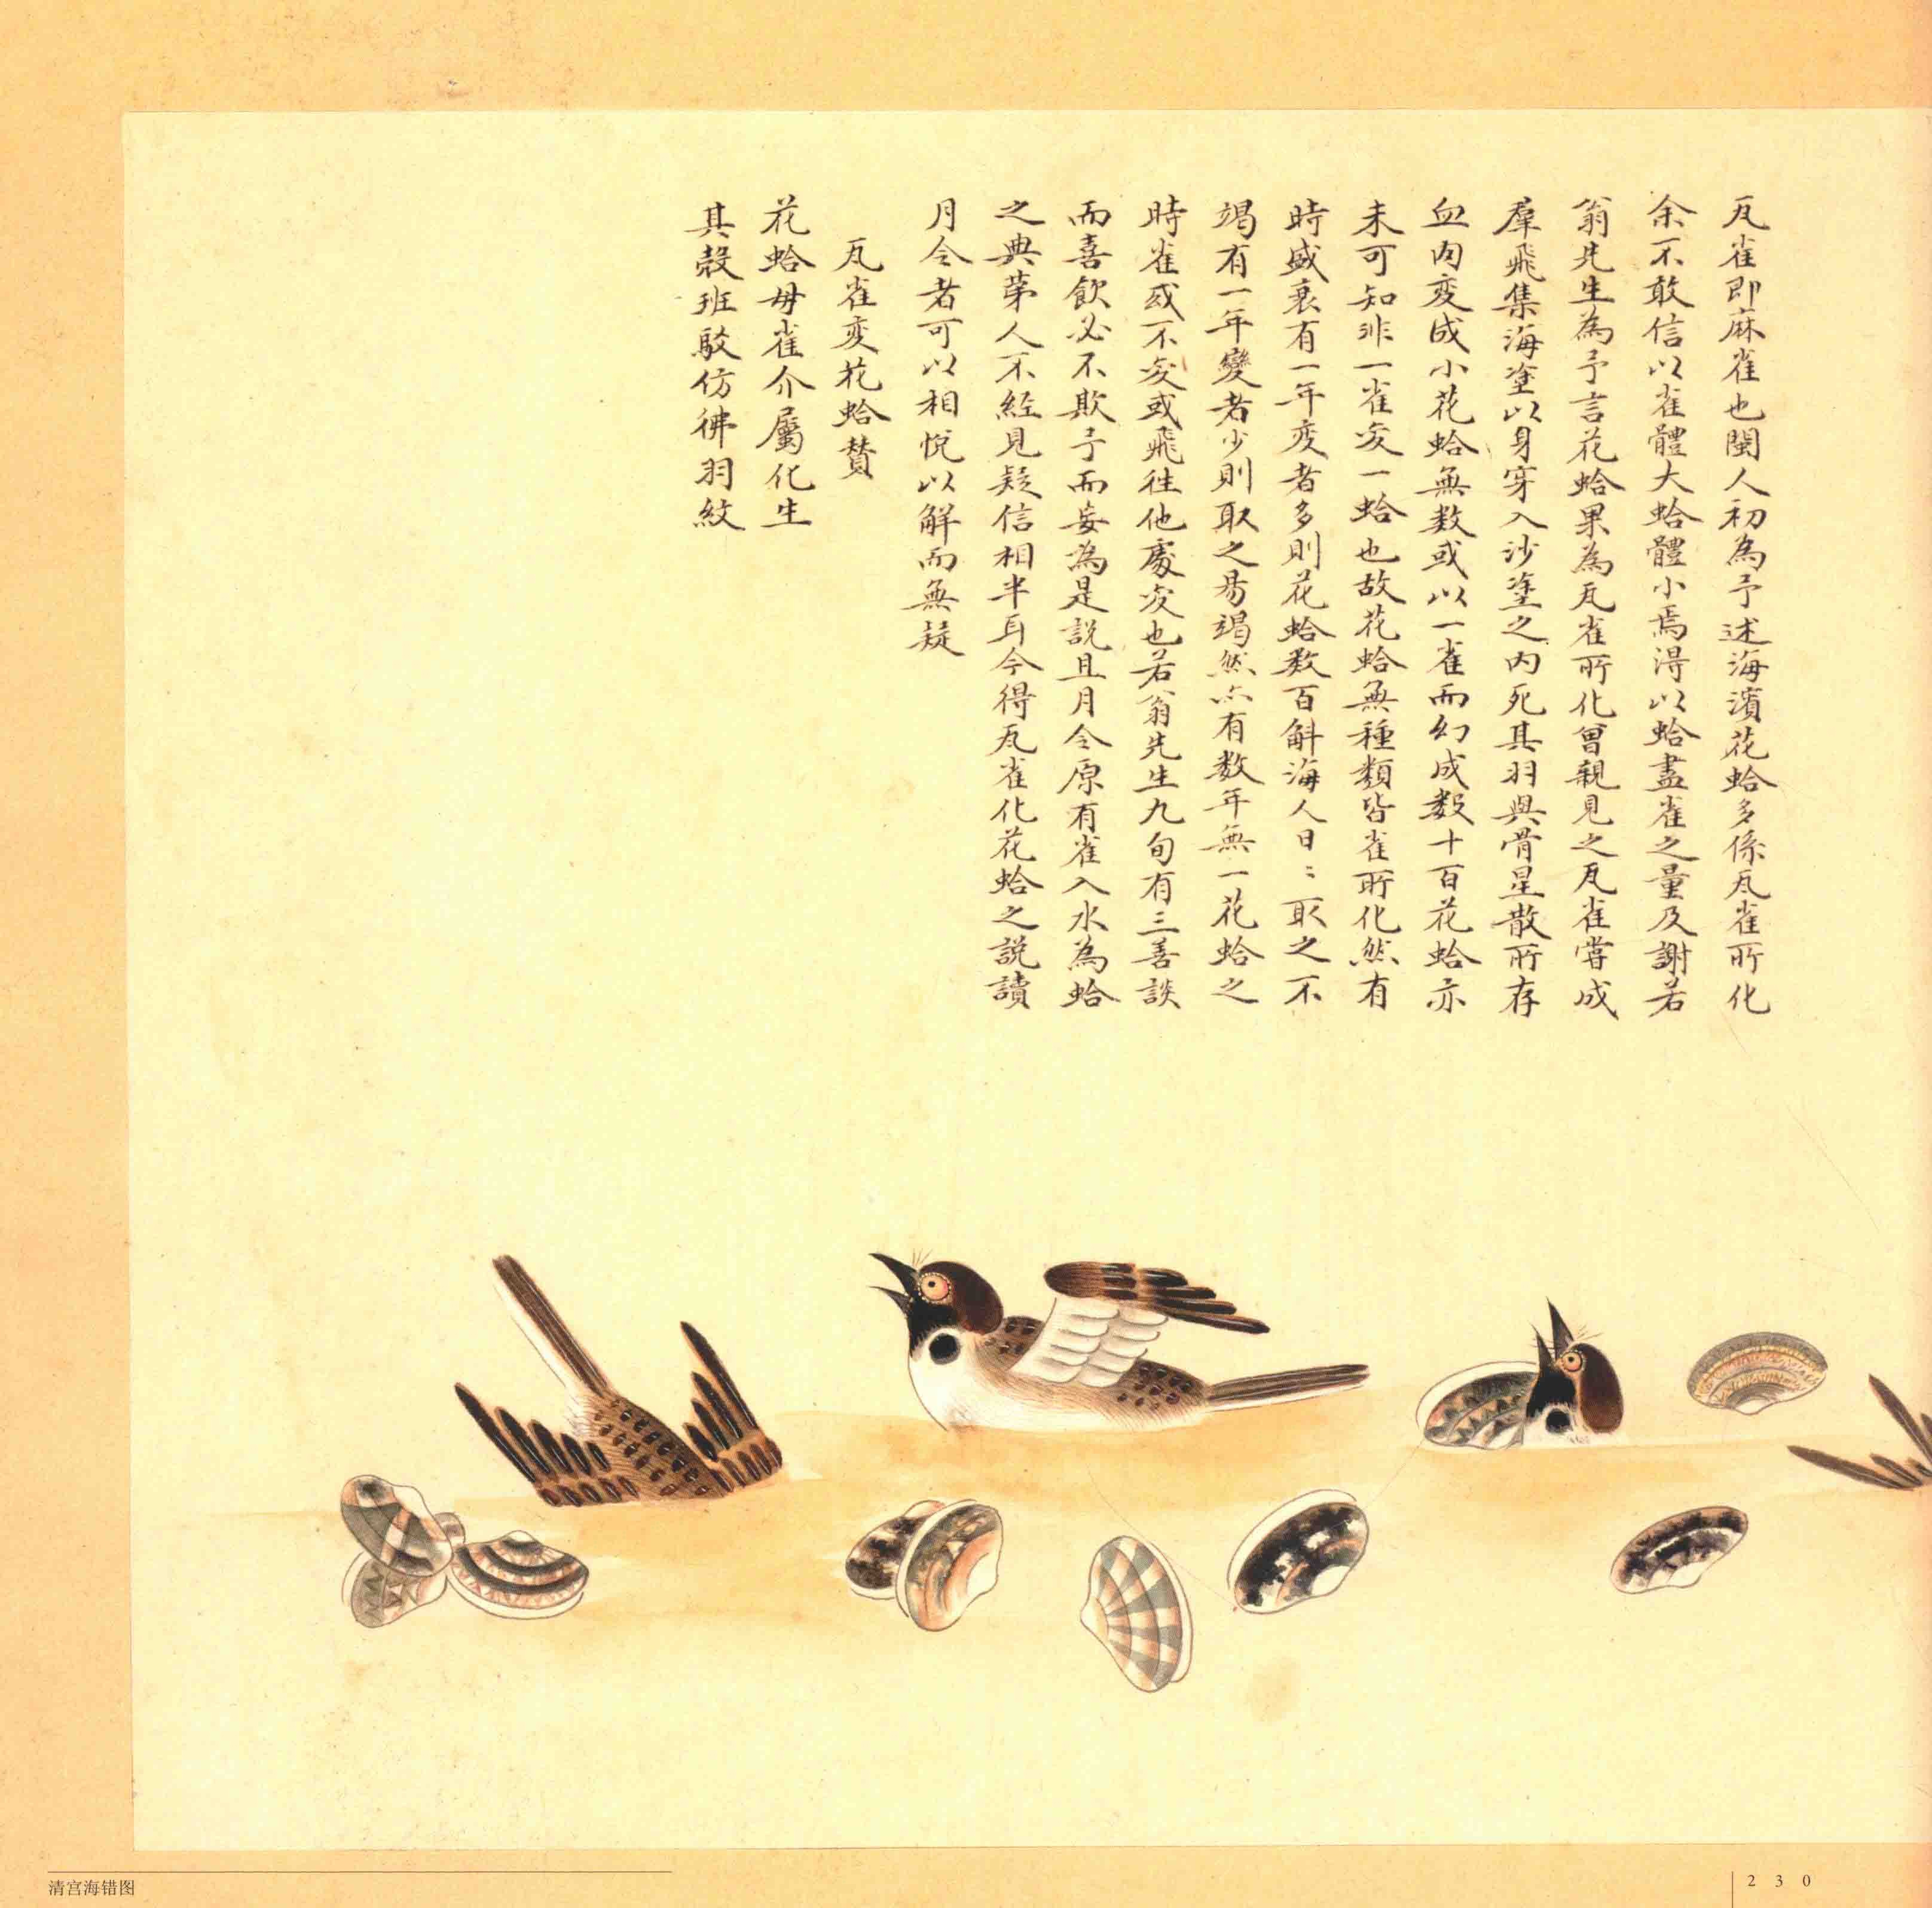 瓦雀即麻雀也閩人初為予述海濱花蛤多係瓦雀所化
余不敢信以雀體大蛤體小焉得以蛤盡雀之量及謝若
翁先生為予言花蛤果為瓦雀所化曾親見之瓦雀嘗成
羣飛集海塗以身穿入沙塗之内死其羽與骨星散所存
血肉变成小花蛤無数或以一雀而幻成數十百花蛤亦
未可知非一雀变一蛤也故花蛤無種類皆雀所化然有
時盛衰有一年变者多則花蛤数百斛海人日〻取之不
竭有一年變者少則取之易竭然亦有数年無一花蛤之
時雀或不变或飛往他處变也若翁先生九旬有三善談
而喜飲必不欺予而妄為是説且月令原有雀入水為蛤
之典第人不經見疑信相半耳今得瓦雀化花蛤之説讀
月令者可以相悅以解而無疑
瓦雀变花蛤賛
花蛤母雀介屬化生
其殼班駁仿彿羽紋
清宫海错图
230